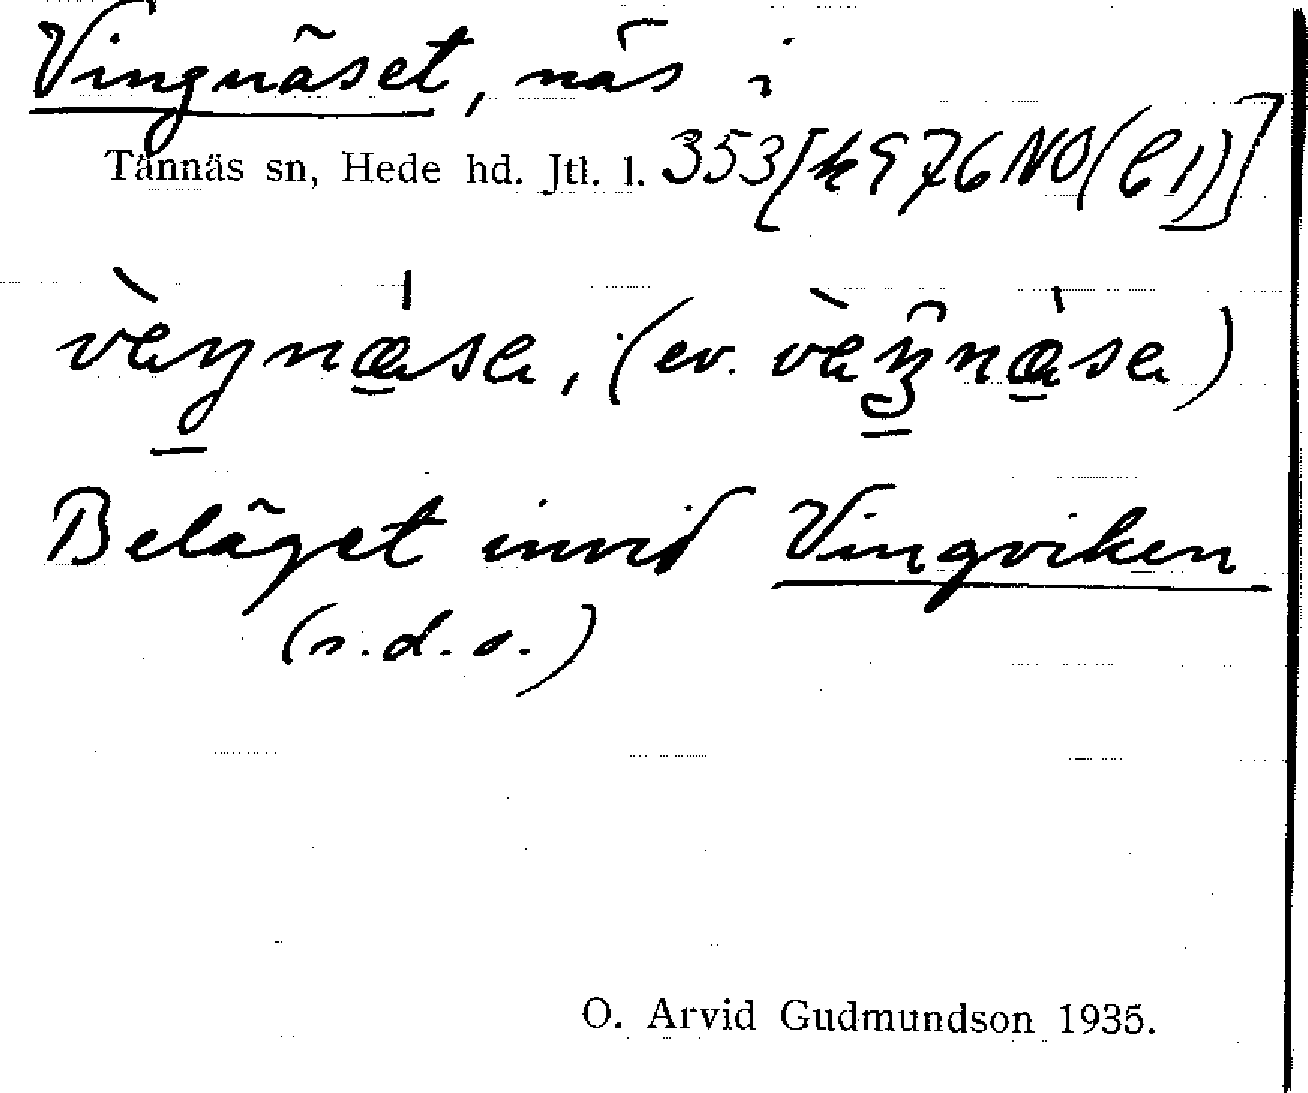 Vingnäset, näs i
Tännäs sn, Hede hd. Jtl. l. 353 [k 976 NO (C1)]
(ev.
Beläget invid Vingviken
(s.d.o.)
O. Arvid Gudmundson 1935.